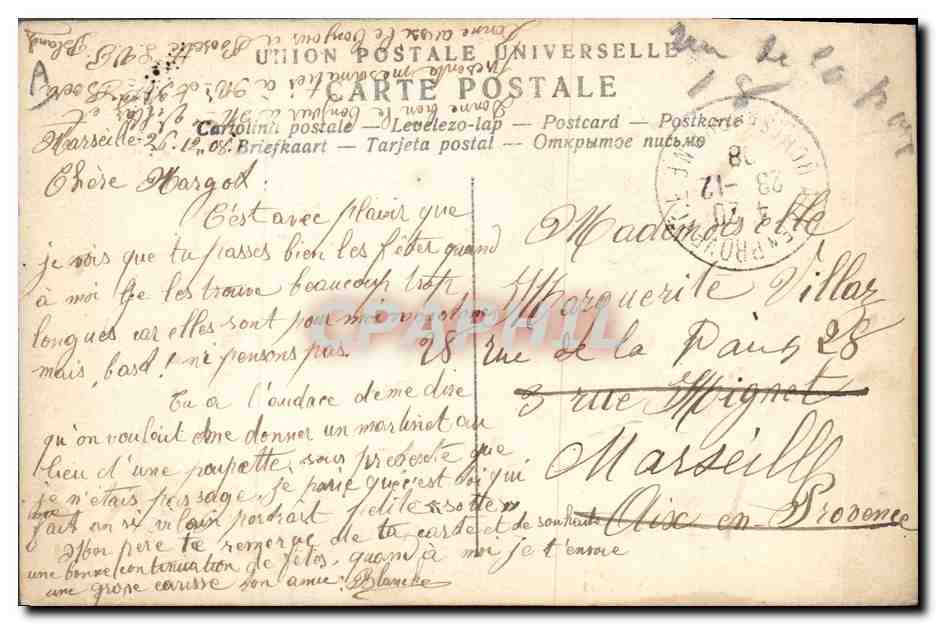 UNION POSTALE UNIVERSELLE
CARTE POSTALE
Cartolina postale — Levelezo-lap — Postcard — Postkarte
Briefkaart — Tarjeta postal — Открытое письмо
A
rue de la
18
Marseille
Chère Margot
C'est avec plaisir que
je vois que tu passes bien les fêtes quand
à moi je les trouve beaucoup trop
longues car elles sont pour moi
mais, bast! n'i pensons pas.
Tu a l'audace de me dire
qu'on voulait me donner un martinet au
lieu d'une poupette, sous prétexte que
je n'étais pas sage, je parie que c'est toi qui
fait un si vilain portrart petite « sotte »
Mon père te remercie de ta carte et de souhaits
une bonne continuation de fêtes, quand à moi je t'envoie
une grosse caresse ton amie Blanche
Donne aussi le bonjour à
Donne bien le bonjour à
Mademoiselle
Marguerite Villar
28 rue de la Paix 28
3 rue Mignet
Marseille
Aix en Provence
4 20
23 -12
08
CPAPHIL